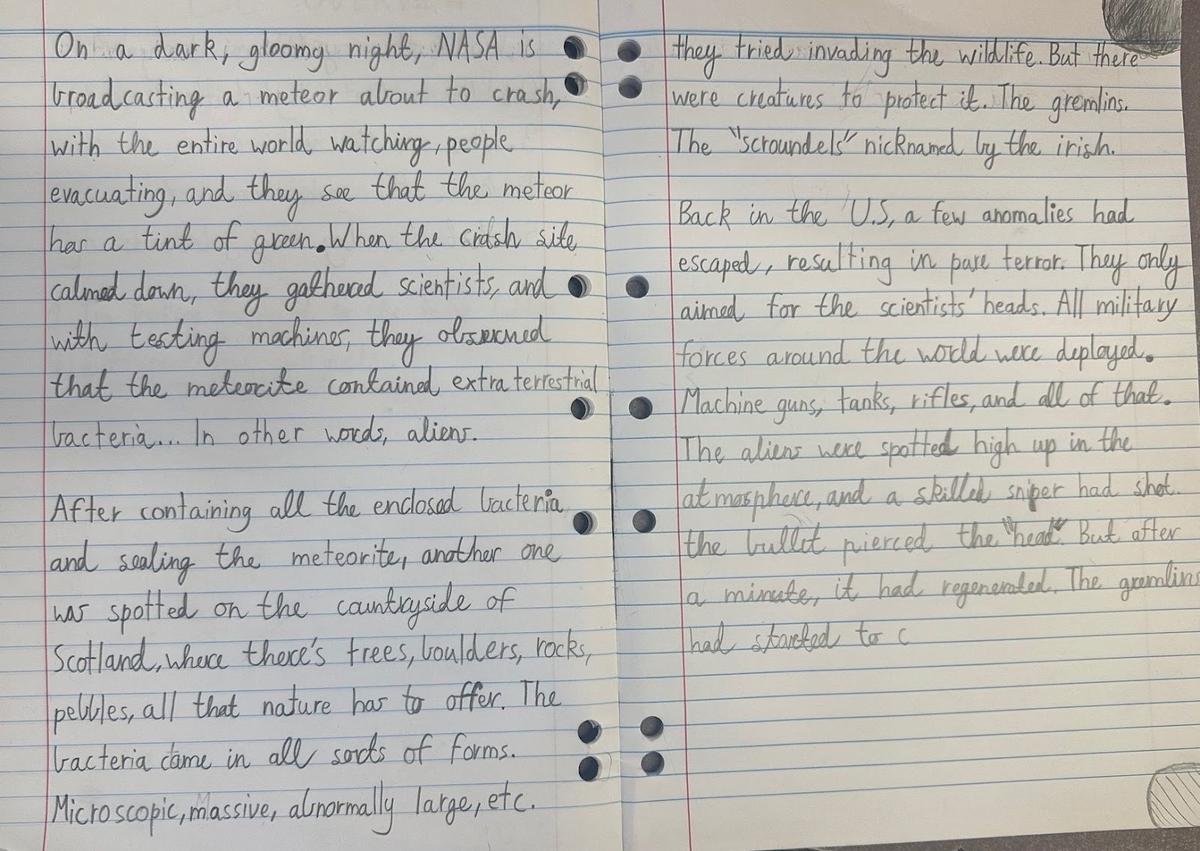 On a dark, gloomy night, NASA is
broadcasting a meteor about to crash,
with the entire world watching, people
evacuating, and they see that the meteor
has a tint of green. When the crash site
calmed down, they gathered scientists, and
with testing machines, they observed
that the meteorite contained extraterrestrial
bacteria... In other words, aliens.
After containing all the enclosed bacteria
and sealing the meteorite, another one
was spotted on the countryside of
Scotland, where there's trees, boulders, rocks,
pebbles, all that nature has to offer. The
bacteria came in all sorts of forms.
Microscopic, massive, abnormally large, etc.
they tried invading the wildlife. But there
were creatures to protect it. The gremlins.
The "scroundels" nicknamed by the irish.
Back in the U.S, a few anomalies had
escaped, resulting in pure terror. They only
aimed for the scientists' heads. All military
forces around the world were deployed.
Machine guns, tanks, rifles, and all of that.
The aliens were spotted high up in the
atmosphere, and a skilled sniper had shot.
the bullet pierced the "head" But after
a minute, it had regenerated. The gremlins
had started to c